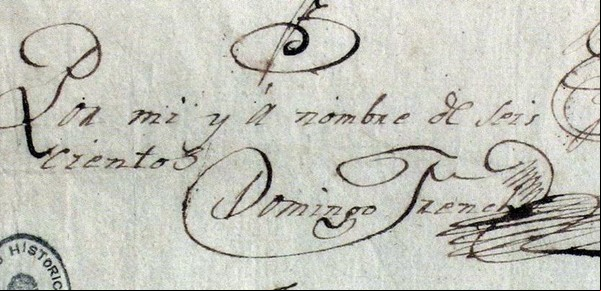 Por mi y á nombre de seis
cientos
Domingo French
HISTORIC